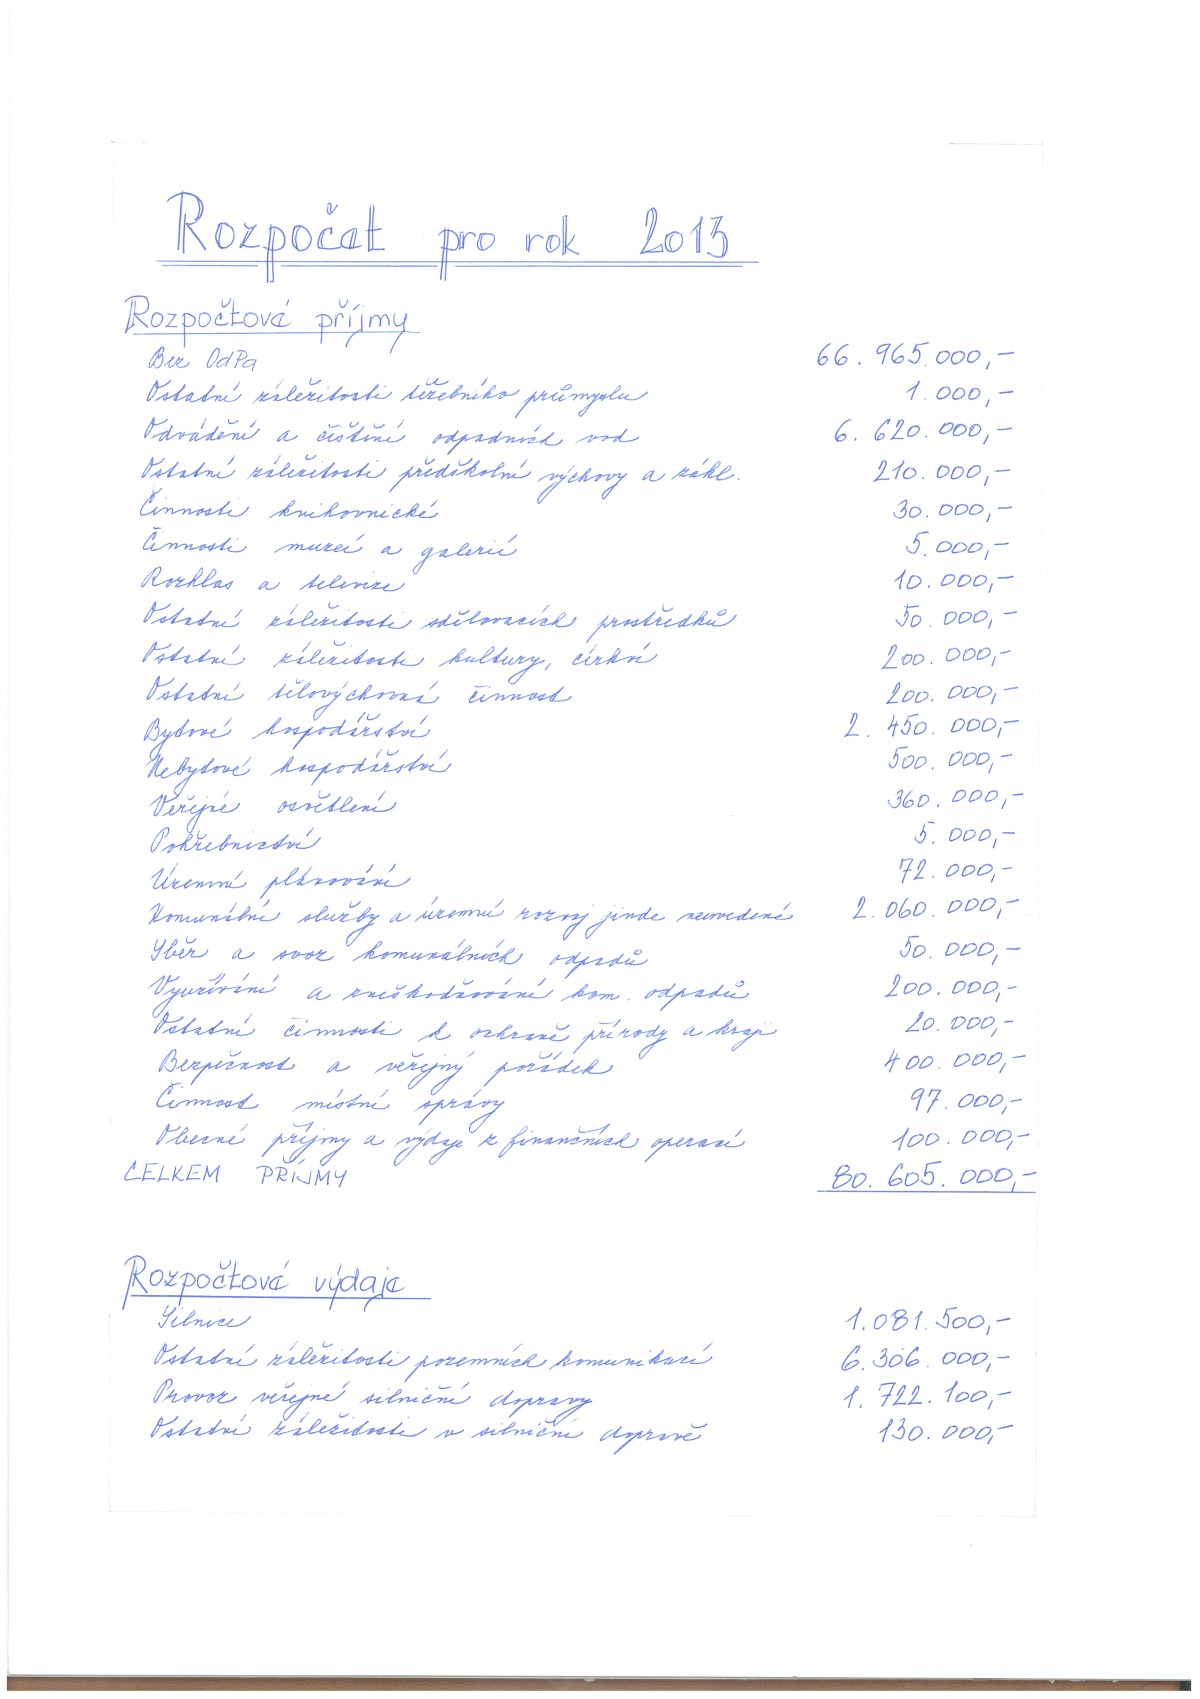 Rozpočet pro rok 2013
Rozpočtové příjmy
Bez OdPa 66.965.000,-
Ostatní záležitosti těžebního průmyslu 1.000,-
Odvádění a čištění odpadních vod 6.620.000,-
Ostatní záležitosti předškolní výchovy a zákl. 210.000,-
Činnosti knihovnické 30.000,-
Činnosti muzeí a galerií 5.000,-
Rozhlas a televize 10.000,-
Ostatní záležitosti sdělovacích prostředků 50.000,-
Ostatní záležitosti kultury, církví 200.000,-
Ostatní tělovýchovná činnost 200.000,-
Bytové hospodářství 2.450.000,-
Nebytové hospodářství 500.000,-
Veřejné osvětlení 360.000,-
Pohřebnictví 5.000,-
Územní plánování 72.000,-
Komunální služby a územní rozvoj jinde neuvedené 2.060.000,-
Sběr a svoz komunálních odpadů 50.000,-
Využívání a zneškodňování kom. odpadů 200.000,-
Ostatní činnosti k ochraně přírody a kraji 20.000,-
Bezpečnost a veřejný pořádek 400.000,-
Činnost místní správy 97.000,-
Obecné příjmy a výdaje z finančních operací 100.000,-
CELKEM PŘÍJMY 80.605.000,-
Rozpočtové výdaje
Silnice 1.081.500,-
Ostatní záležitosti pozemních komunikací 6.306.000,-
Provoz veřejné silniční dopravy 1.722.100,-
Ostatní záležitosti v silniční dopravě 130.000,-